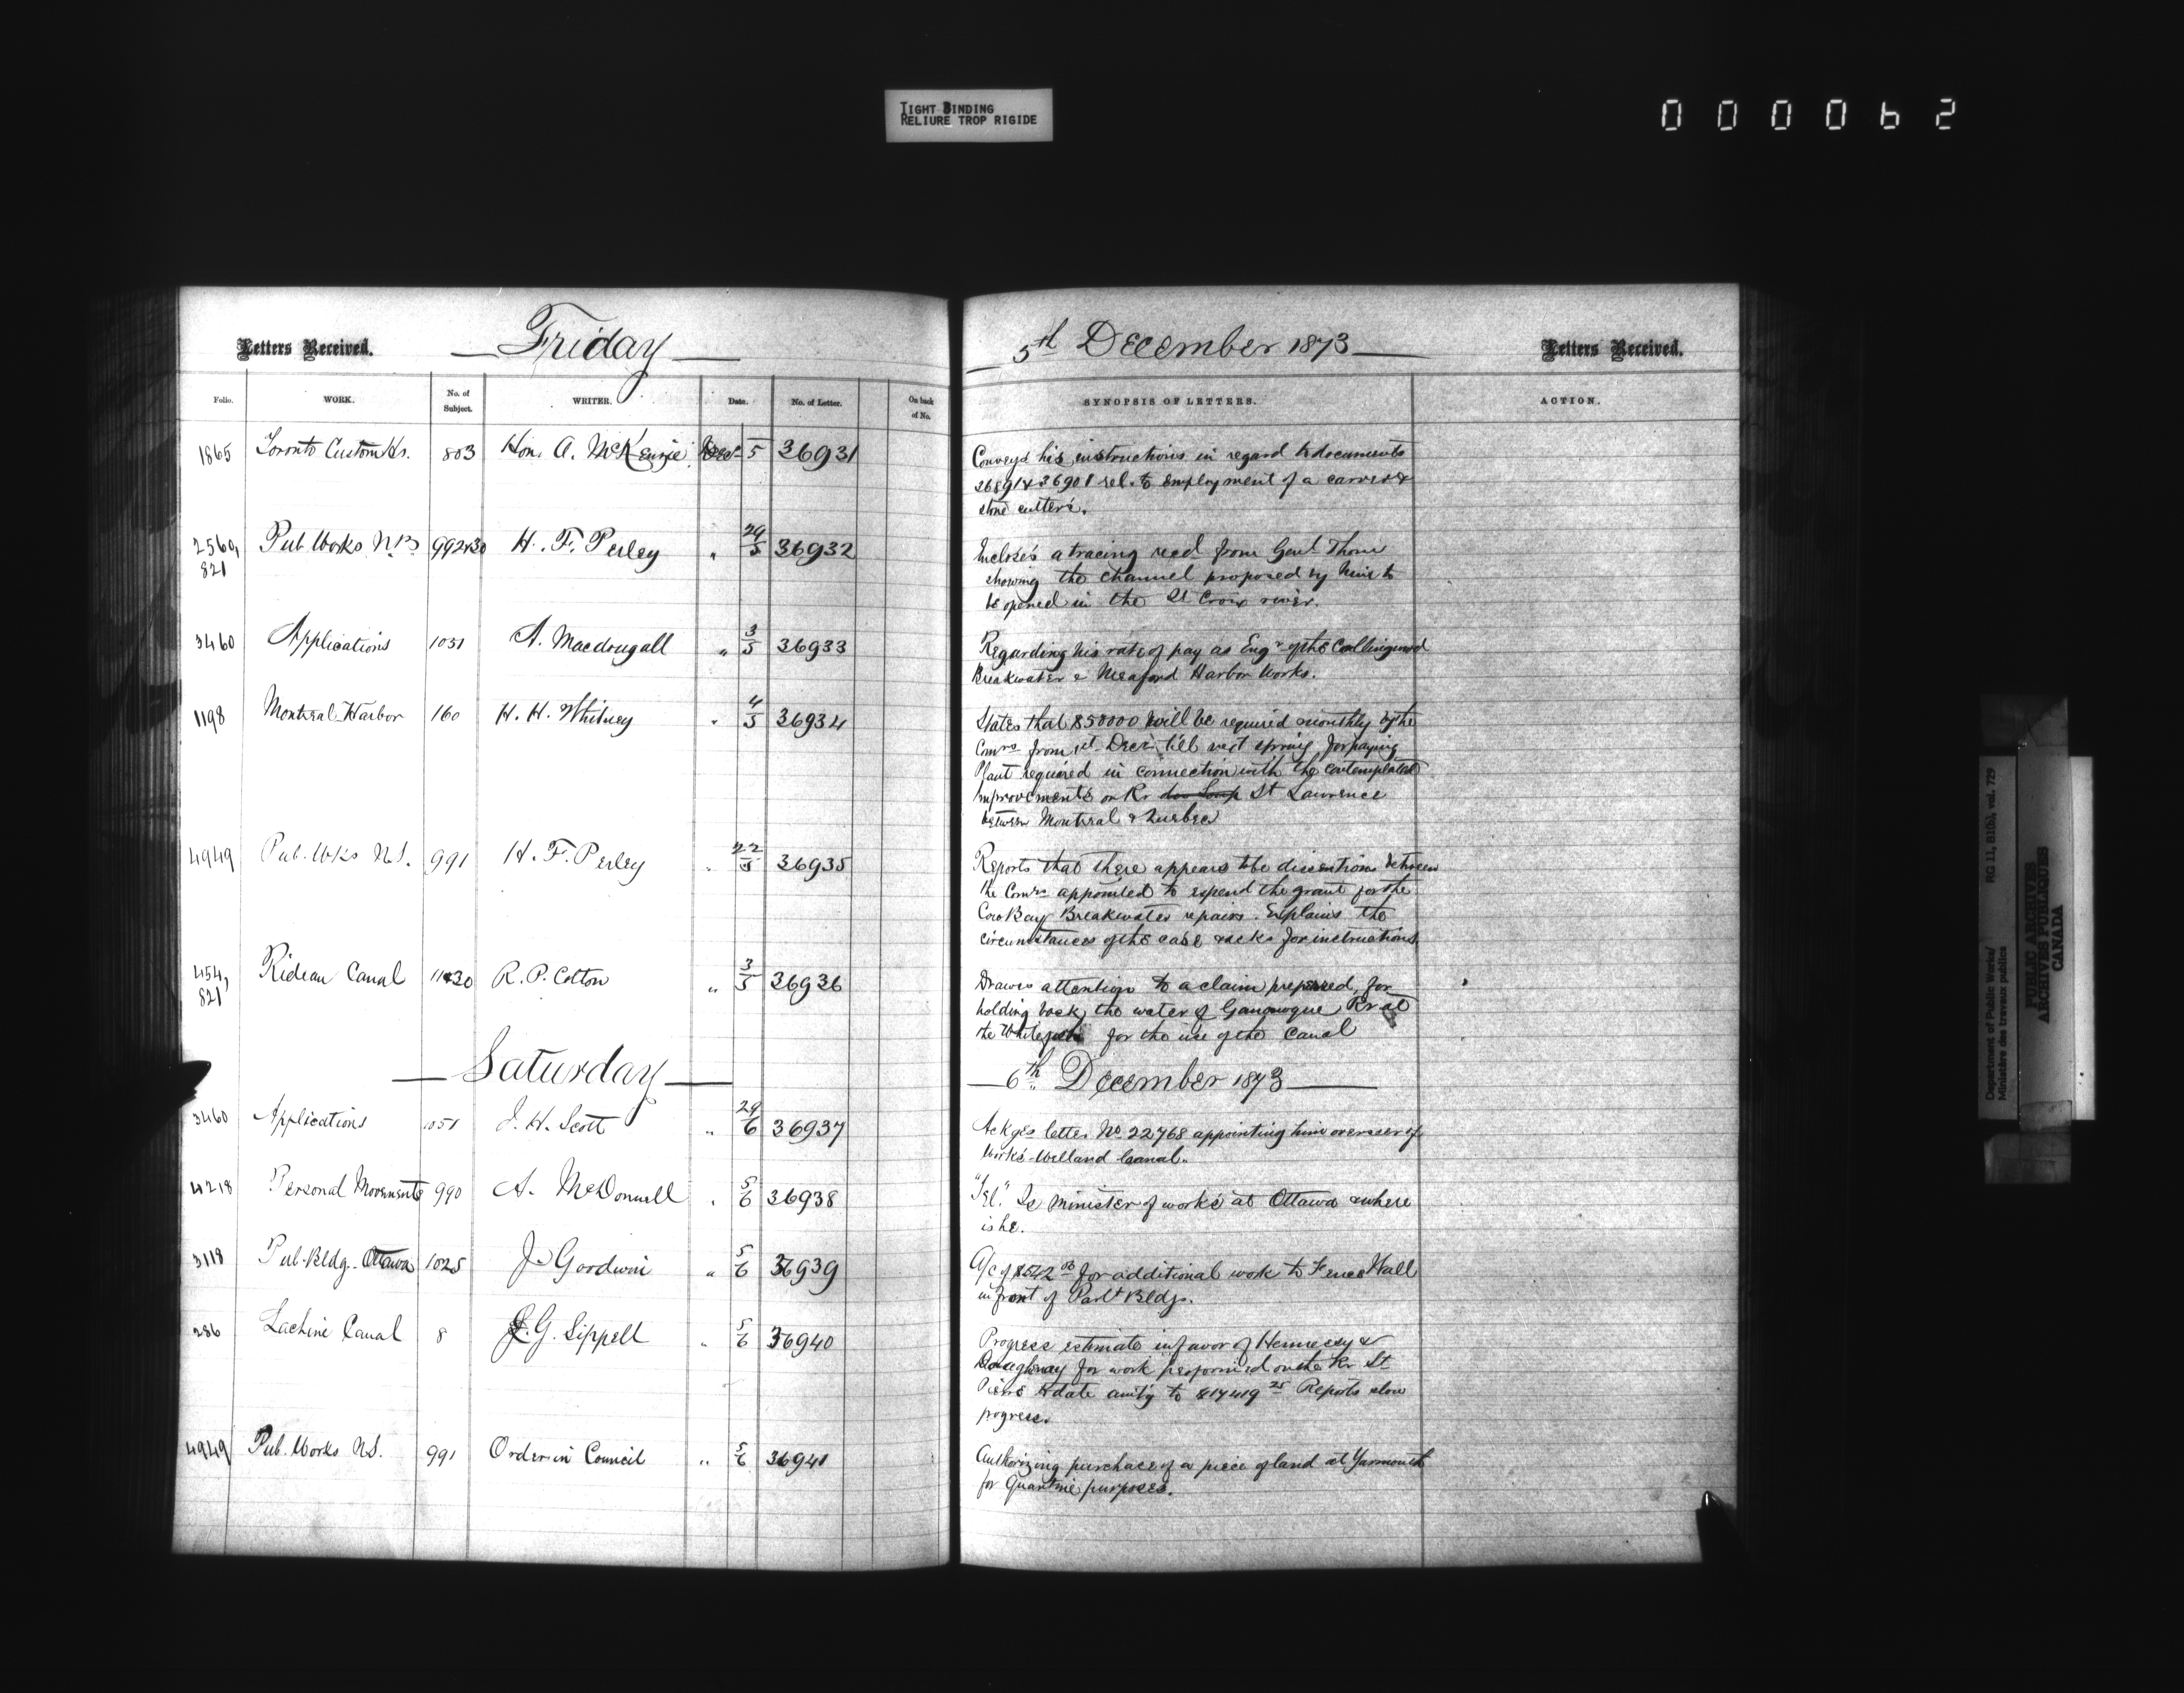 TIGHT BINDING
RELIURE TROP RIGIDE
000062
Letters Received. Friday
Folio. WORK. No. of Subject. WRITER. Date. No. of Letter. On back of No.
1865 Toronto Custom Hs. 803 Hon. A. McKenzie Dec 5 36931
2560, 821 Pub. Works N.B. 992 & 30 H. F. Perley " 29/5 36932
3460 Applications 1031 A. Macdougall " 3/5 36933
1198 Montreal Harbor 160 H. H. Whitney " 4/5 36934
4949 Pub. Wks N.S. 991 H. F. Perley " 22/5 36935
454, 821 Rideau Canal 11&30 R. P. Cotton " 3/5 36936
Saturday
3460 Applications 1051 J. H. Scott " 29/6 36937
4218 Personal Movements 990 A. McDonnell " 5/6 36938
3118 Pub. Bldg. Ottawa 1025 J. Goodwin " 5/6 36939
286 Lachine Canal 8 J. G. Sippell " 5/6 36940
4949 Pub. Works N.S. 991 Order in Council " 5/6 36941
5th December 1873 Letters Received.
SYNOPSIS OF LETTERS. ACTION.
Conveys his instructions in regard to documents
36891 & 36901 rel. to employment of a carver &
stone cutters.
Incloses a tracing recd from Genl Thom
showing the channel proposed by him to
be opened in the St Croix river.
Regarding his rate of pay as Engr of the Collingwood
Breakwater & Meaford Harbor Works.
States that $50000 will be required monthly by the
Comrs from 1st Decr till next spring for paying
Plant required in connection with the contemplated
improvements on Rr du Loup St Lawrence
between Montreal & Quebec
Reports that there appears to be dissentions between
the Comrs appointed to expend the grant for the
Cow Bay Breakwater repairs. Explains the
circumstances of the case & asks for instructions.
Draws attention to a claim preferred, for
holding back the water of Gananoque Rr at
the Whitefish for the use of the Canal
6th December 1873
Ackges letter No 22768 appointing him overseer of
Works - Welland Canal.
"Tel." Is Minister of works at Ottawa & where
is he.
A/c of $542 for additional work to Fence Wall
in front of Parlt Bldgs.
Progress estimate in favor of Hennessy &
for work performed on the Rr St
Pierre to date amtg to $17419 25 Reports slow
progress.
Authorizing purchase of a piece of land at Yarmouth
for Quantine purposes.
Department of Public Works/ RG 11, B1(b), vol. 729
Ministère des travaux publics
PUBLIC ARCHIVES
ARCHIVES PUBLIQUES
CANADA